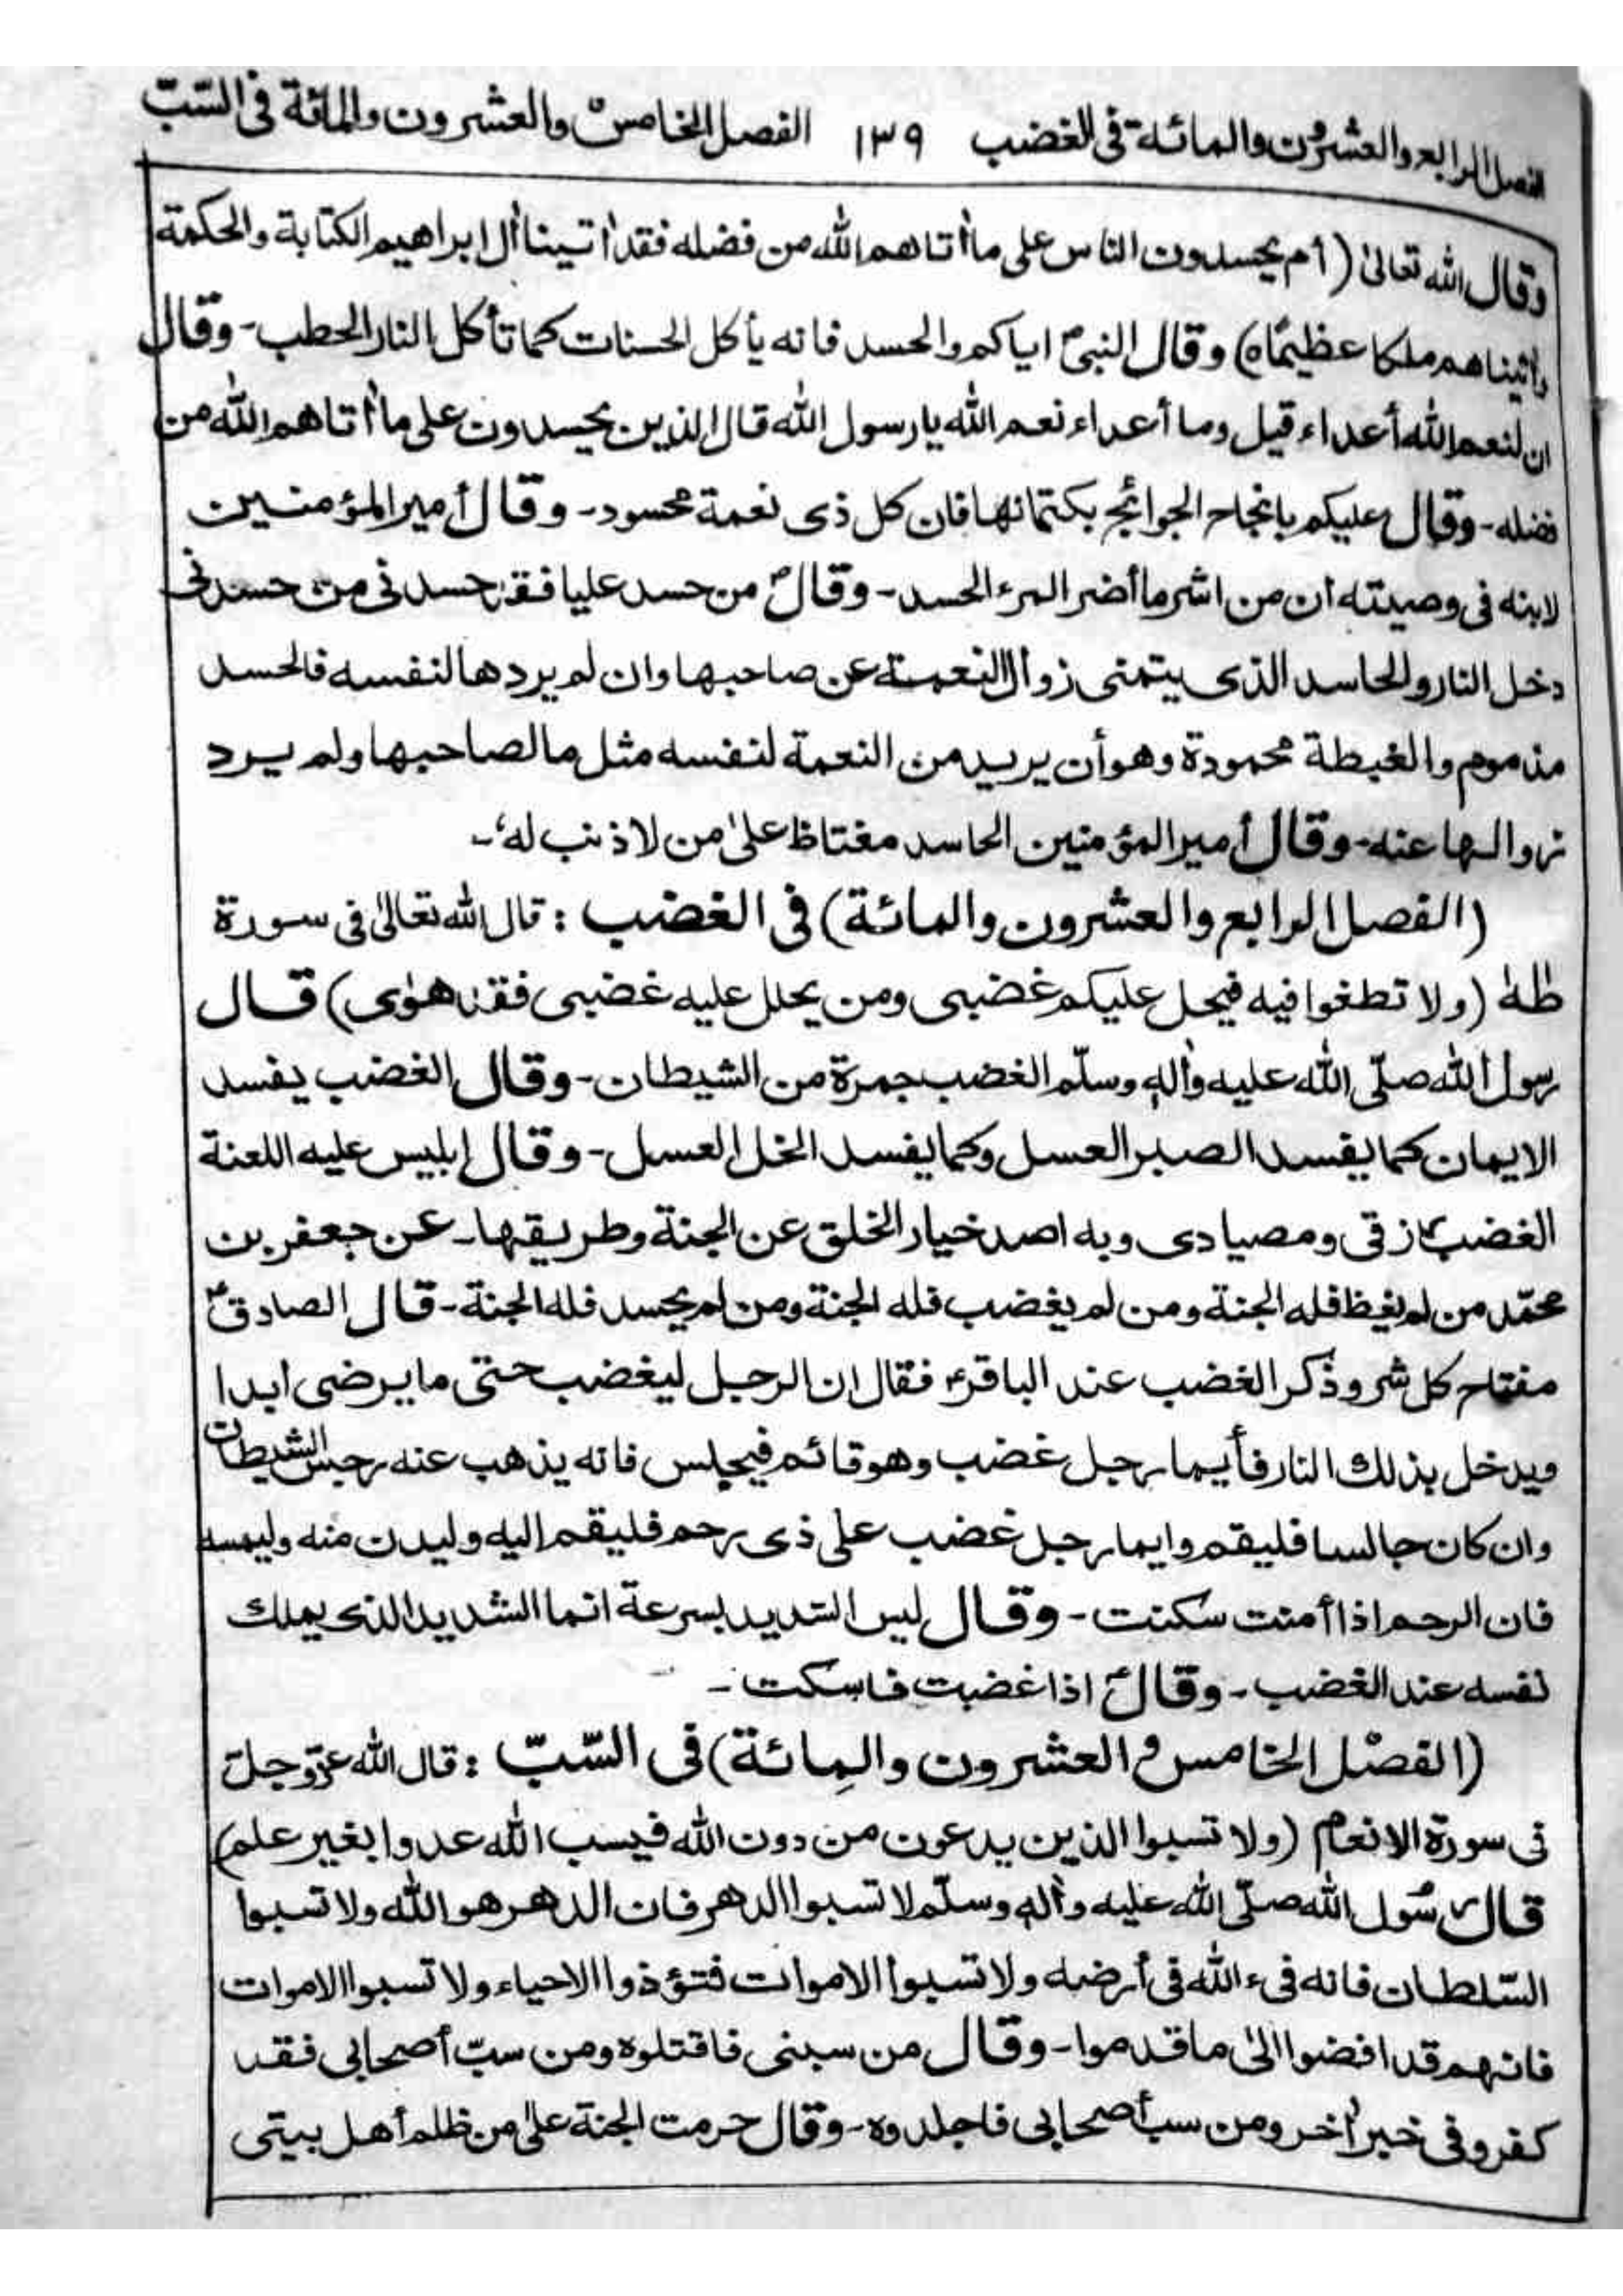 الفصل الرابع والعشرون والمائة فى الغضب ١٣٩ الفصل الخامس والعشرون والمائة فى السّبّ
وقال الله تعالىٰ (أم يحسدون الناس على ما أتاهم الله من فضله فقد اٰتينا أل ابراهيم الكتابة والحكمة
واٰتيناهم ملكا عظيمًا ه) وقال النبىؐ اياكم والحسد فانه يأكل الحسنات كما تأكل النار الحطب - وقال
ان لنعم الله أعداء قيل وما أعداء نعم الله يا رسول الله قال الذين يحسدون على ما أتاهم الله من
فضله - وقال عليكم بانجاح الحوائج بكتمانها فان كل ذى نعمة محسود - وقال أمير المؤمنين
لابنه فى وصيته ان من اشر ما أضر المرء الحسد - وقالؐ من حسد عليا فقد حسدنى من حسدنى
دخل النار والحاسد الذى يتمنى زوال النعمة عن صاحبها وان لم يردها لنفسه فالحسد
مذموم والغبطة محمودة وهو أن يريد من النعمة لنفسه مثل ما لصاحبها ولم يرد
زوالها عنه - وقال أمير المؤمنين الحاسد مغتاظ علىٰ من لا ذنب له -
(الفصل الرابع والعشرون والمائة) فى الغضب : قال الله تعالىٰ فى سورة
طٰهٰ (ولا تطغوا فيه فيحل عليكم غضبى ومن يحلل عليه غضبى فقد هوٰى) قال
رسول الله صلّى الله عليه واٰلهٖ وسلّم الغضب جمرة من الشيطان - وقال الغضب يفسد
الايمان كما يفسد الصبر العسل وكما يفسد الخل العسل - وقال ابليس عليه اللعنة
الغضب ومصيادى وبه اصد خيار الخلق عن الجنة وطريقها - عن جعفر بن
محمّد من لم يغظ فله الجنة ومن لم يغضب فله الجنة ومن لم يحسد فله الجنة - قال الصادقؑ
مفتاح كل شر وذكر الغضب عند الباقرؑ فقال ان الرجل ليغضب حتى ما يرضى ابدا
ويدخل بذلك النار فأيما رجل غضب وهو قائم فيجلس فانه يذهب عنه رجس الشيطان
وان كان جالسا فليقم وايما رجل غضب على ذى رحم فليقم اليه وليدن منه وليمسه
فان الرحم اذا أمنت سكنت - وقال ليس الشديد بسرعة انما الشديد الذى يملك
نفسه عند الغضب - وقالؑ اذا غضبت فاسكت -
(الفصل الخامس والعشرون والمائة) فى السّبّ : قال الله عزّ وجلّ
فى سورة الانعام (ولا تسبوا الذين يدعون من دون الله فيسب الله عدوا بغير علم)
قال رسول الله صلّى الله عليه واٰلهٖ وسلّم لا تسبوا الدهر فان الدهر هو الله ولا تسبوا
السّلطان فانه فىء الله فى أرضه ولا تسبوا الاموات فتؤذوا الاحياء ولا تسبوا الاموات
فانهم قد افضوا الىٰ ما قدموا - وقال من سبنى فاقتلوه ومن سبّ أصحابى فقد
كفر وفى خبر اٰخر ومن سب أصحابى فاجلدوه - وقال حرمت الجنة علىٰ من ظلم أهل بيتى